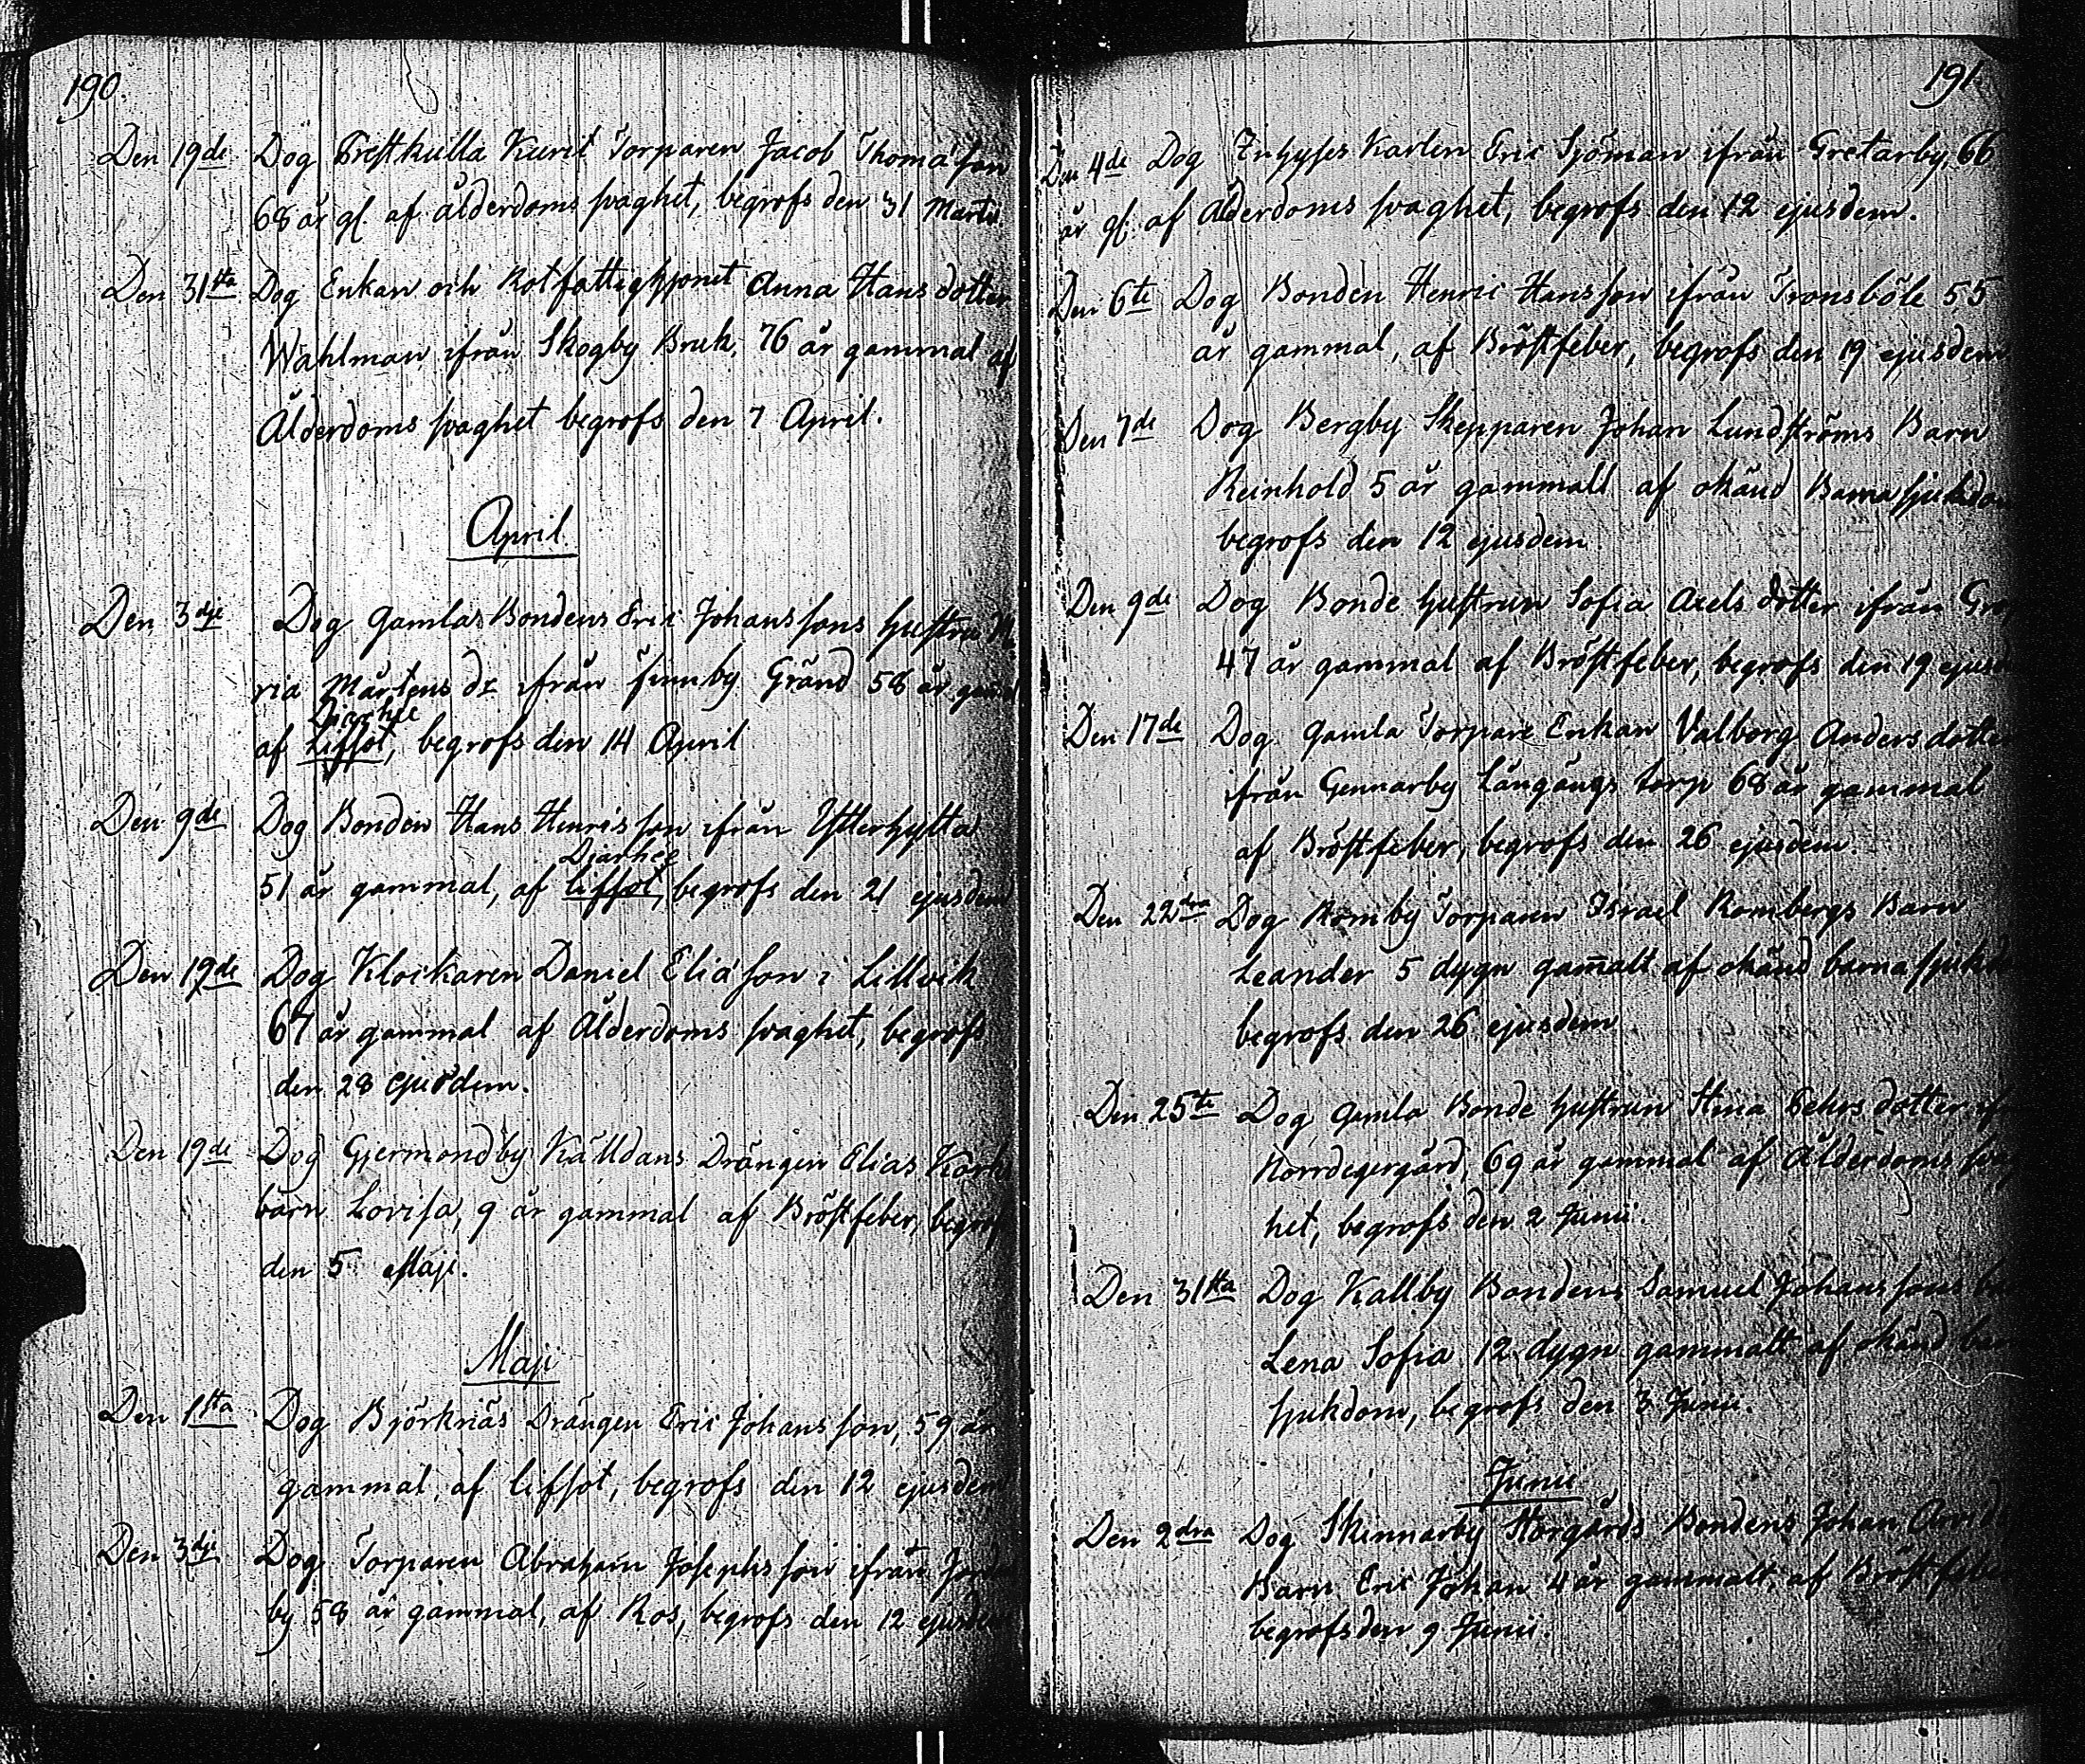 190.
Den 19de Dog Prestkulla Kurit Torparen Jacob Thoma'son
68 år gl. af ålderdoms svaghet, begrofs den 31 Martii.
Den 31sta Dog Enkan och Rotfattighjonet Anna Hans dotter
Wahlman ifrån Skogby Bruk, 76 år gammal af
Ålderdoms svaghet begrofs den 7 April.
April
Den 3dje Dog gamla Bondens Eric Johanssons hustru Ma
ria Mårtens dr ifrån finnby Gränd 58 år gammal
Diarhee
af lifsot, begrofs den 14 April
Den 9de Dog Bonden Hans Henrisson ifrån Ytterhytta
Diarhee
51 år gammal, af lifsot, begrofs den 21 ejusdem
Den 19de Dog Klockaren Daniel Elia'son i Lillvik
67 år gammal af Ålderdoms svaghet, begrofs
den 28 ejusdem.
Den 19de Dog Gjermondby Källdans Drängen Elias
barn Lovisa, 9 år gammal af Bröstfeber, begrofs
den 5 Maji.
Maji
Den 1sta Dog Björknäs Drängen Eric Johansson, 59 år
gammal, af lifsot, begrofs den 12 ejusdem
Den 3dje Dog Torparen Abraham Josephsson ifrån
by 58 år gammal, af Ros, begrofs den 12 ejusdem
191.
Den 4de Dog Inhyses Karlen Eric Sjöman ifrån Gretarby, 66
år gl. af Ålderdoms svaghet, begrofs den 12 ejusdem.
Den 6te Dog Bonden Henric Hansson ifrån Tronsböle 55
år gammal, af Bröstfeber, begrofs den 19 ejusdem
Den 7de Dog Bergby Skepparen Johan Lundströms Barn
Reinhold 5 år gammalt af okänd Barnasjukdom
begrofs den 12 ejusdem.
Den 9de Dog Bonde hustrun Sofia Axels dotter ifrån
47 år gammal af Bröstfeber, begrofs den 19 ejusd
Den 17de Dog gamla Torpare Enkan Valborg Anders dotter
ifrån Gennarby Långängs torp 68 år gammal
af Bröstfeber, begrofs den 26 ejusdem.
Den 22dra Dog Romby Torparen Israel Rombergs Barn
Leander 5 dygn gam̄alt af okänd barnasjukd
begrofs den 26 ejusdem
Den 25te Dog gamla Bonde hustrun Stina Pehrs dotter if
Norrdegergård, 69 år gammal af Ålderdoms svag
het, begrofs den 2 Junii.
Den 31sta Dog Kallby Bondens Samuel Johanssons
Lena Sofia 12 dygn gammalt af okänd bar
sjukdom, begrofs den 3 Junii.
Junii
Den 2dra Dog Skinnarby Storgårds Bondens Johan
Barn Eric Johan 4 år gammalt, af Bröstfeber
begrofs den 9 Junii.